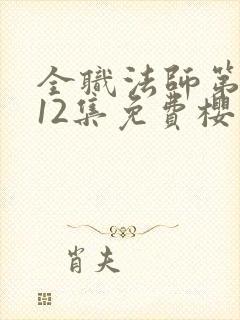 全職法師第
12集免費櫻
肖夫